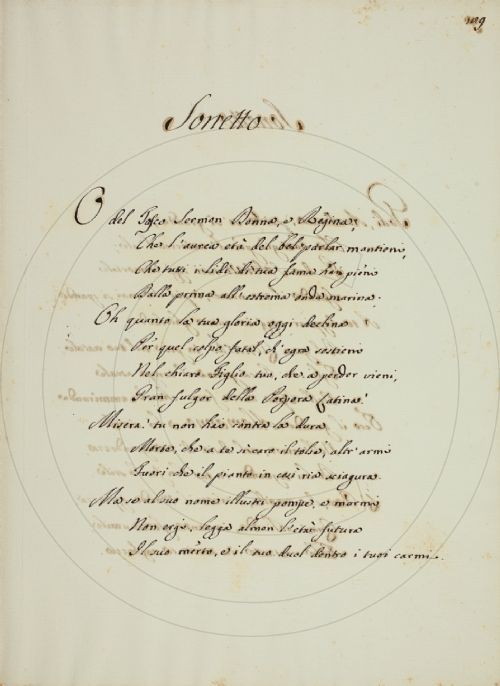 109
Sonetto
O del Tosco Sermon Donna, e Regina,
Che l'aurea età del bel parlar mantieni,
Che tutti i lidi di tua fama hai pieni
Dalla prima all'estrema onda marina.
Oh quanto la tua gloria oggi declina
Per quel colpo fatal, ch'egra sostieni
Nel chiaro Figlio tuo, che a perder vieni,
Gran fulgor della Porpora Latina!
Misera! tu non hai contra la dura
Morte, che a te sì caro il tolse, altr'armi
Fuori che il pianto in così ria sciagura.
Ma se al suo nome illustri pompe, e marmi
Non ergi, legga almen l'età futura
Il suo merto, e il tuo duol dentro i tuoi carmi.